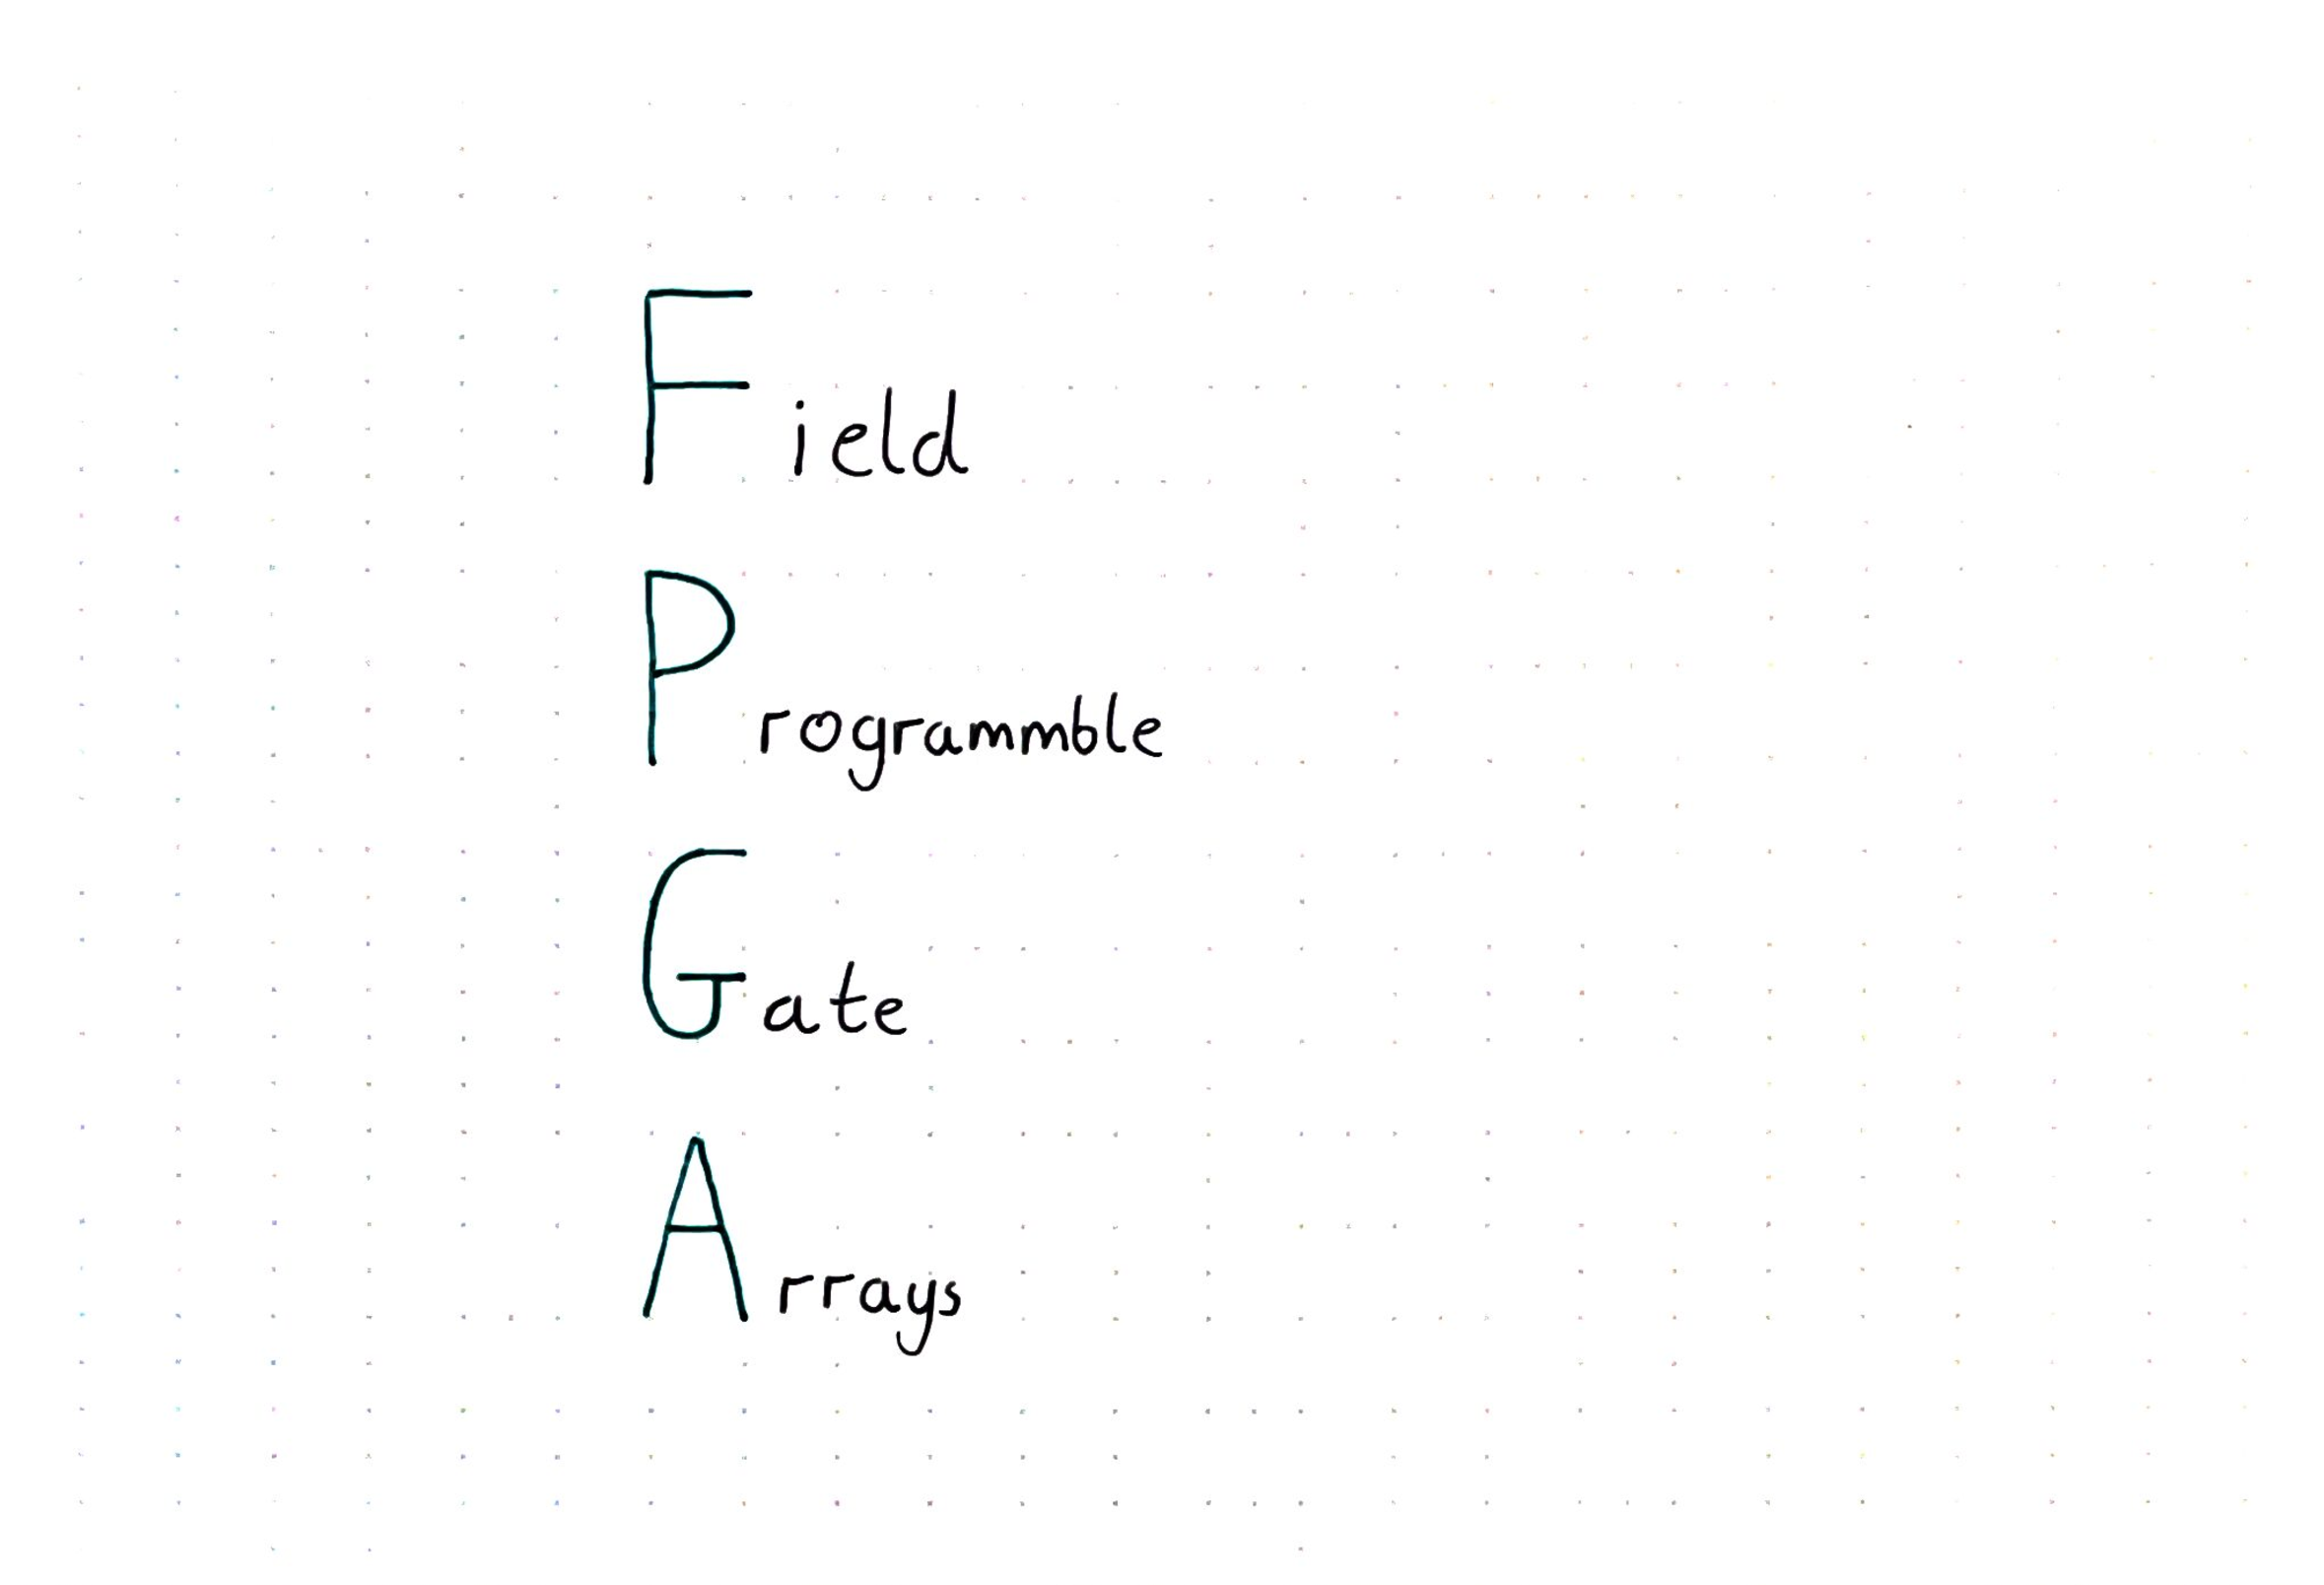 Field
Programmble
Gate
Arrays